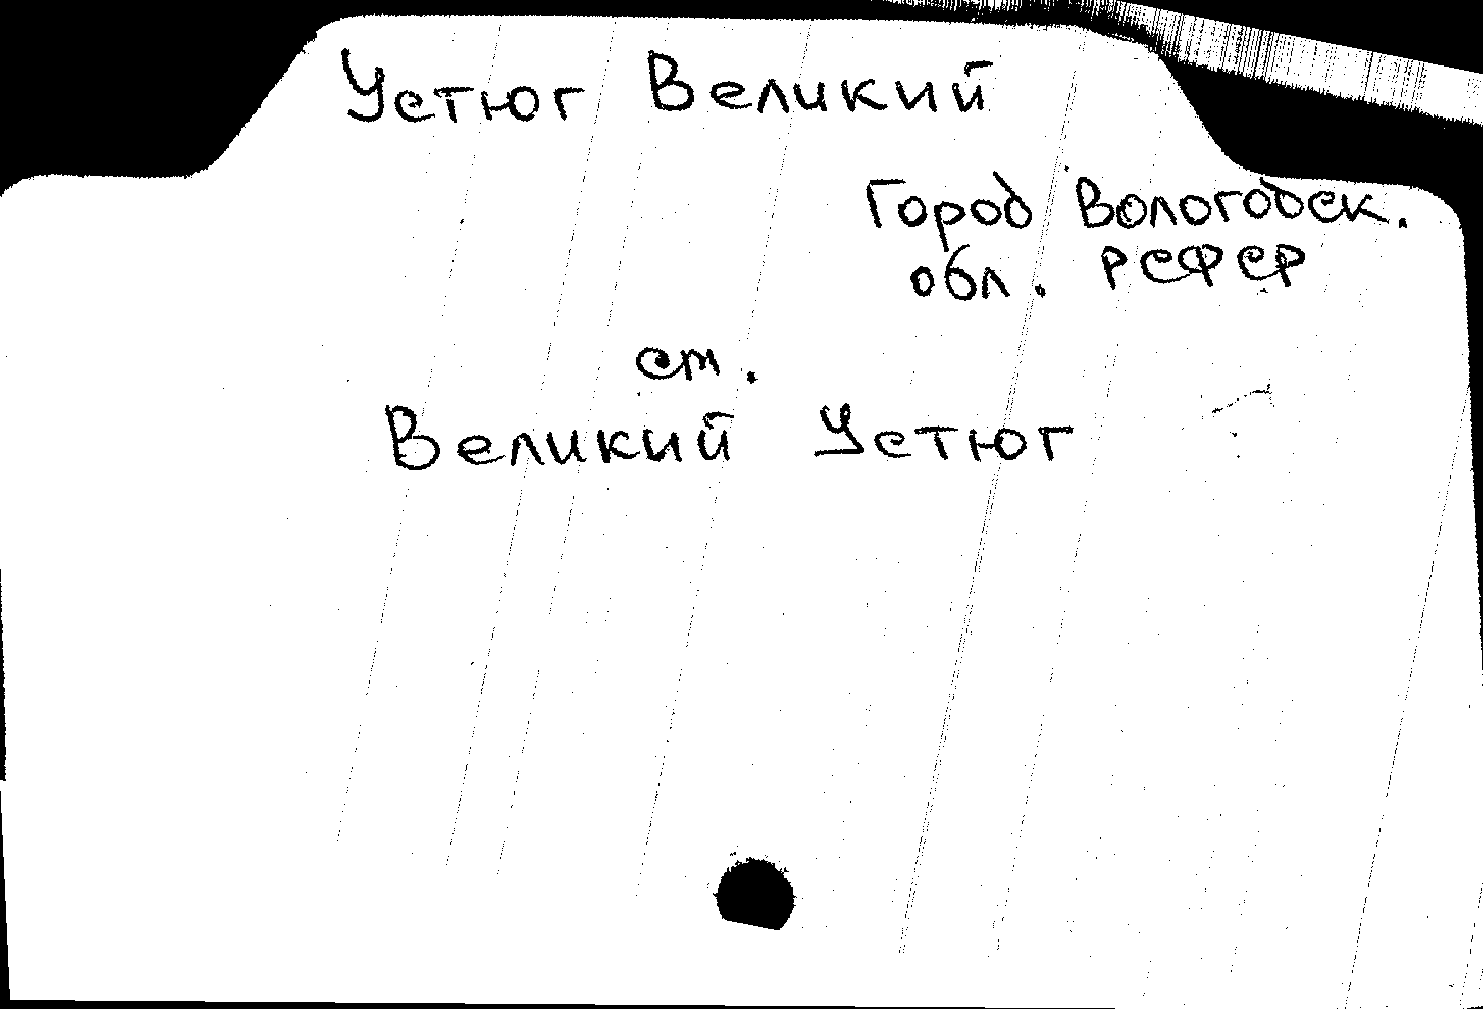 Устюг Великий
Город Вологодск.
обл. РСФСР
см.
Великий Устюг